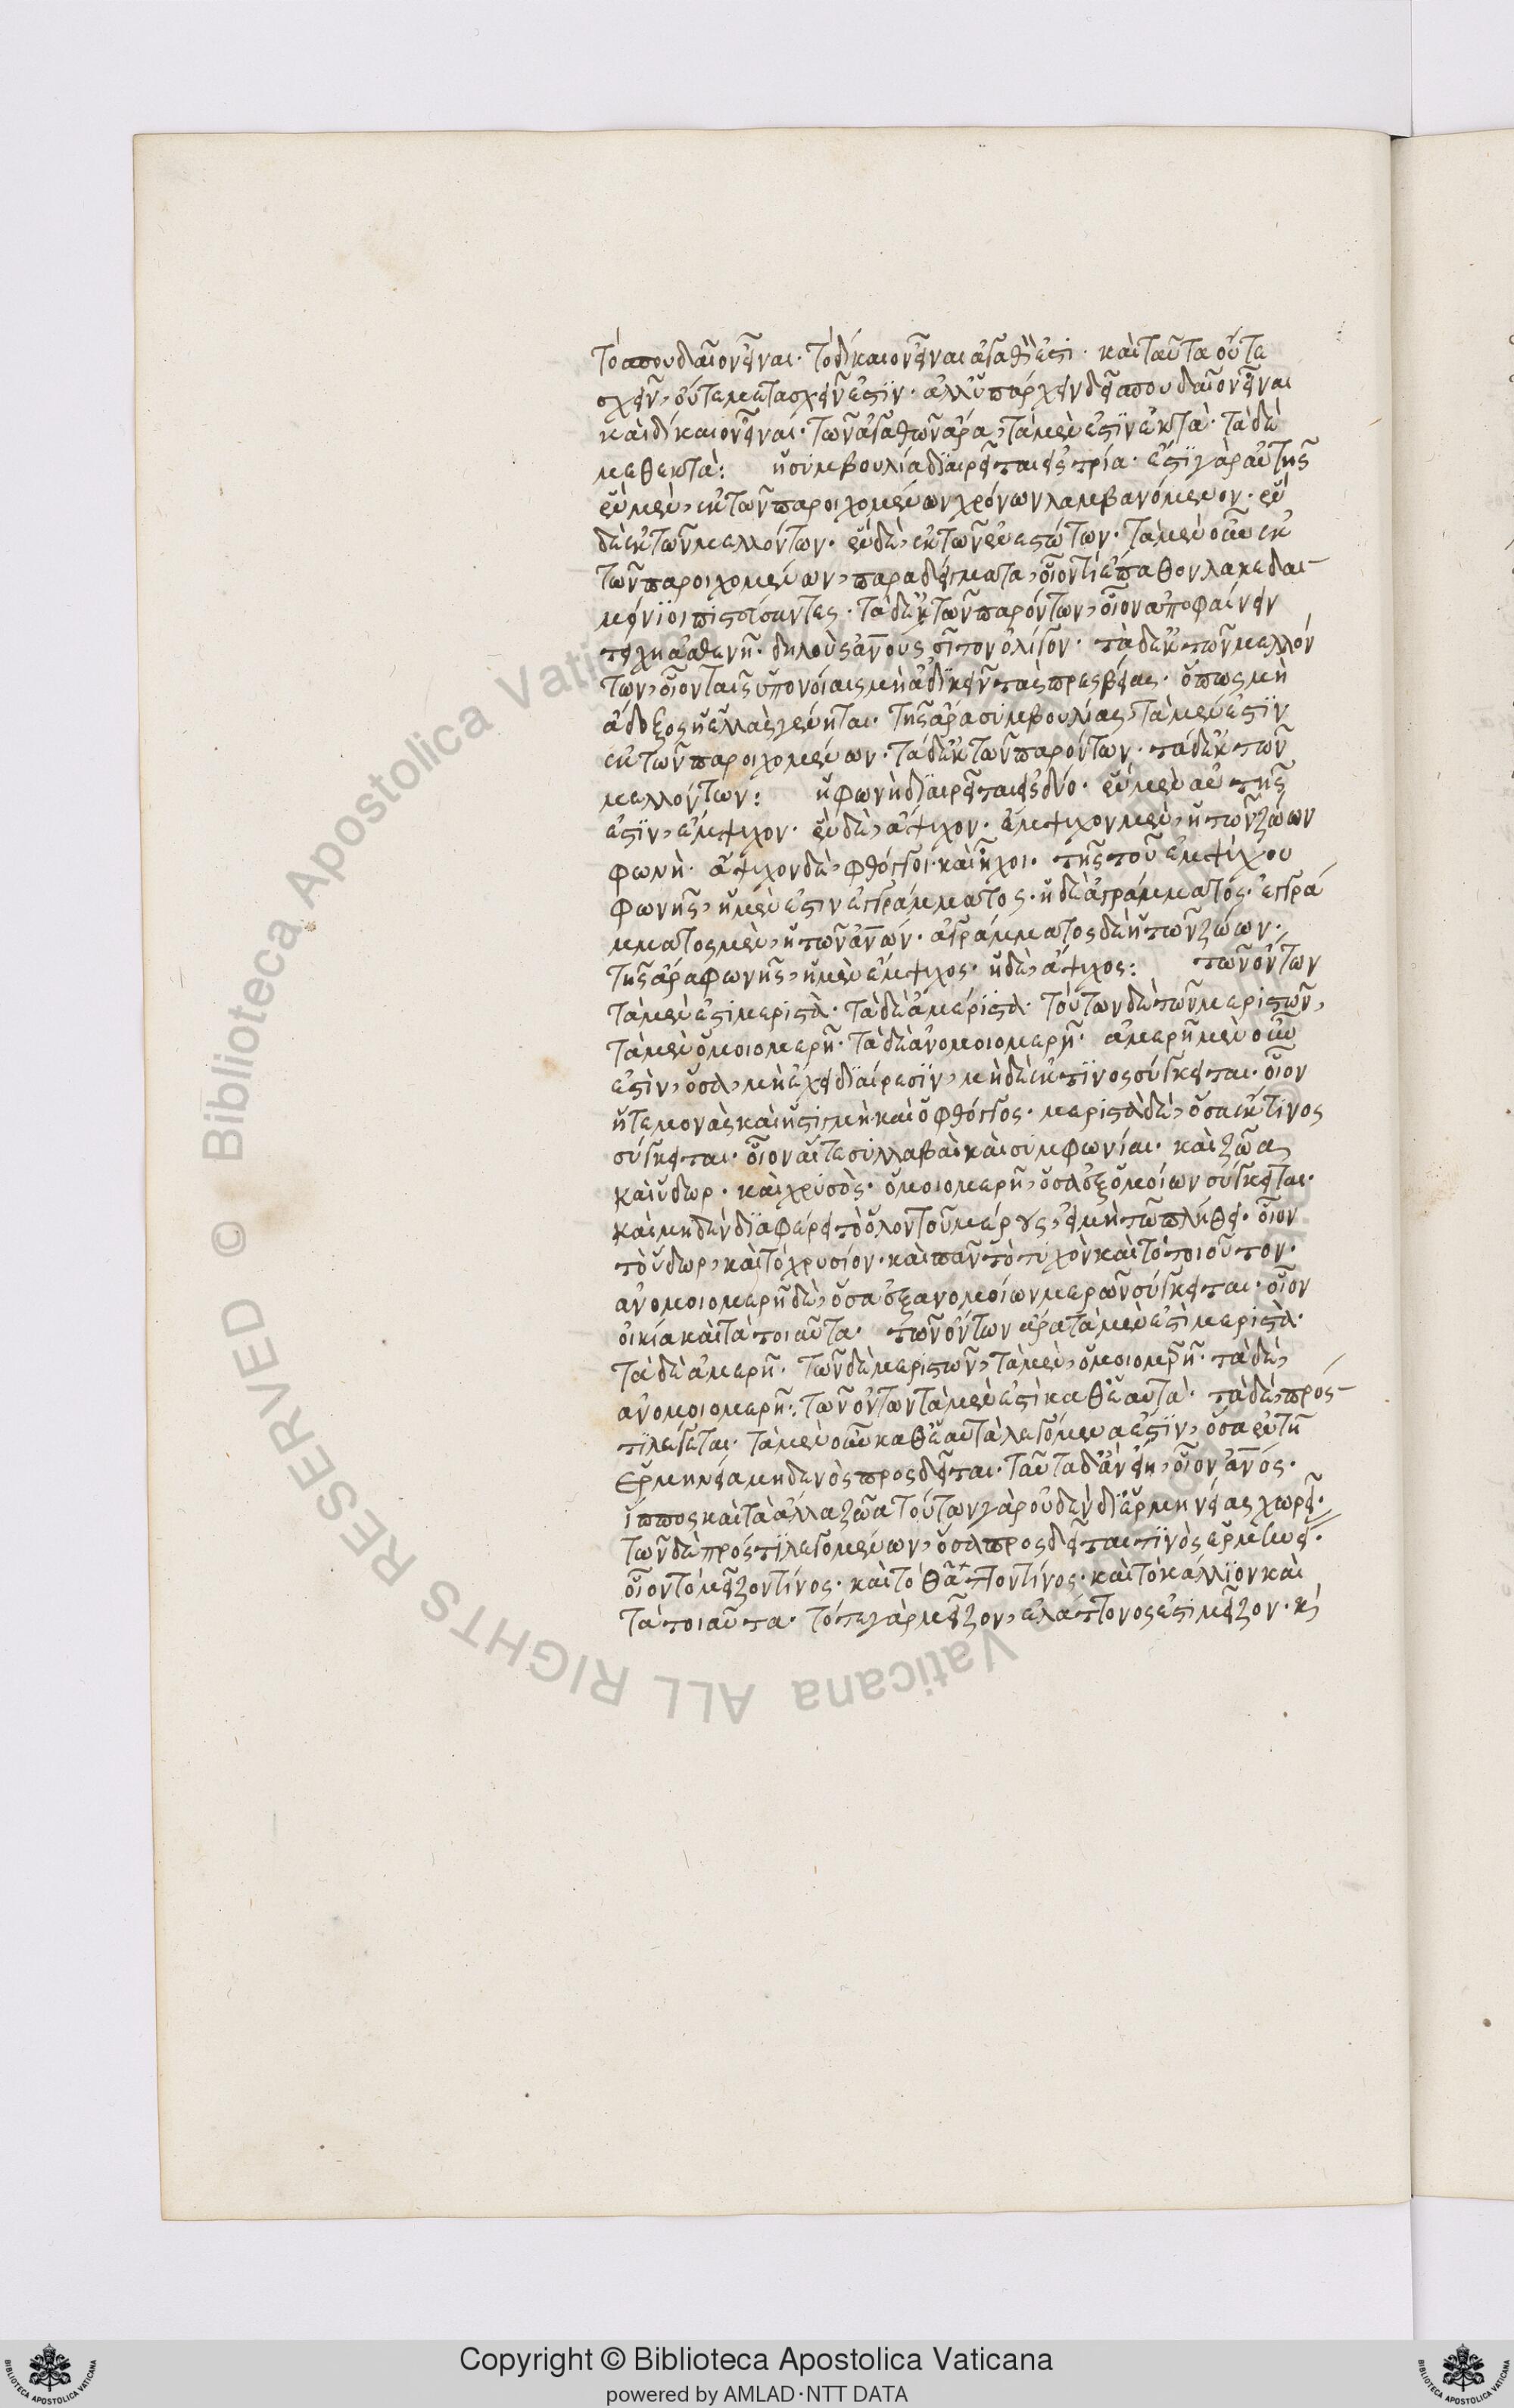 τὸ σπουδαῖον εἶναι· τὸ δίκαιον εἶναι ἀγαθὸν ἐστί· καὶ ταῦτα οὔτε
σχεῖν, οὔτε μετασχεῖν ἐστὶν· ἀλλ' ὑπάρχειν δεῖ σπουδαῖον εἶναι
καὶ δίκαιον εἶναι· τῶν ἀγαθῶν ἄρα, τὰ μὲν ἐστὶν ἑκτὰ· τὰ δὲ
μεθεκτὰ: ἡ συμβουλία διαιρεῖται εἰς τρία· ἔστι γὰρ αὐτῆς
ἓν μὲν, ἐκ τῶν παροιχομένων χρόνων λαμβανόμενον· ἓν
δὲ ἐκ τῶν μελλόντων· ἓν δὲ, ἐκ τῶν ἐνεστώτων· τὰ μὲν οὖν ἐκ
τῶν παροιχομένων, παραδείγματα, οἷον τί ἔπαθον λακεδαι-
μόνιοι πιστεύσαντες· τὰ δ' ἐκ τῶν παρόντων, οἷον ἀποφαίνειν
τείχη ἀσθενῆ· δειλοὺς ἀνους σῖτον ὀλίγον· τὰ δ' ἐκ τῶν μελλόν
των, οἷον ταῖς ὑπονοίαις μὴ ἀδικεῖν τὰς πρεσβείας· ὅπως μὴ
ἄδοξος ἡ ἑλλὰς γένηται· τῆς ἄρα συμβουλίας, τὰ μέν ἐστιν
ἐκ τῶν παροιχομένων· τὰ δ' ἐκ τῶν παρόντων· τὰ δ' ἐκ τῶν
μελλόντων: ἡ φωνὴ διαιρεῖται εἰς δύο· ἓν μὲν αὐτῆς
ἐστὶν, ἔμψυχον· ἓν δὲ, ἄψυχον· ἔμψυχον μὲν, ἡ τῶν ζώων
φωνὴ· ἄψυχον δὲ, φθόγγοι καὶ ἦχοι· τῆς τοῦ ἐμψύχου
φωνῆς, ἡ μέν ἐστιν ἐγγράμματος· ἡ δὲ ἀγράμματος· ἐγγρά
μματος μὲν, ἡ τῶν ἀνων· ἀγράμματος δὲ ἡ τῶν ζώων·
τῆς ἄρα φωνῆς, ἡ μὲν ἔμψυχος· ἡ δὲ, ἄψυχος: τῶν ὄντων
τὰ μέν ἐστι μεριστὰ· τὰ δὲ ἀμέριστα· τούτων δὲ τῶν μεριστῶν,
τὰ μὲν ὁμοιομερῆ· τὰ δὲ ἀνομοιομερῆ· ἀμερῆ μὲν οὖν
ἐστὶν, ὅσα, μὴ ἔχει διαίρεσιν, μὴ δὲ ἐκ τινος σύγκειται· οἷον
ἥ τε μονὰς καὶ ἡ στιγμὴ καὶ ὁ φθόγγος· μεριστὰ δὲ, ὅσα ἔκ τινος
σύγκειται· οἷον αἵ τε συλλαβαὶ καὶ συμφωνίαι· καὶ ζῶα
καὶ ὕδωρ· καὶ χρυσὸς· ὁμοιομερῆ, ὅσα ἐξ ὁμοίων σύγκειται·
καὶ μηδὲν διαφέρει τὸ ὅλον τοῦ μέρους, εἰ μὴ τῶ πλήθει· οἷον
τὸ ὕδωρ, καὶ τὸ χρυσίον· καὶ πᾶν τὸ τυχὸν καὶ τὸ τοιοῦτον·
ἀνομοιομερῆ δὲ, ὅσα ἐξ ἀνομοίων μερῶν σύγκειται· οἷον
οἰκία καὶ τὰ τοιαῦτα· τῶν ὄντων ἄρα τὰ μέν ἐστι μεριστὰ·
τὰ δὲ ἀμερῆ· τῶν δὲ μεριστῶν, τὰ μὲν, ὁμοιομερῆ· τὰ δὲ,
ἀνομοιομερῆ: τῶν ὄντων τὰ μέν ἐστι καθ' ἑαυτὰ· τὰ δὲ, πρός-
τι λέγεται· τὰ μὲν οὖν καθ' ἑαυτὰ λεγόμενα ἐστὶν, ὅσα ἐν τῆ
ἑρμηνεία μηδενὸς προσδεῖται· ταῦτα δ' ἂν εἴη, οἷον ἀνος·
ἵππος καὶ τὰ ἄλλα ζῶα τούτων γὰρ οὐδὲν δι' ἑρμηνείας χωρεῖ·
τῶν δὲ πρός τι λεγομένων, ὅσα προσδεῖται τινὸς ἑρμηνείας·
οἷον τὸ μεῖζον τινος· καὶ τὸ θᾶττον τινος· καὶ τὸ κάλλιον καὶ
τὰ τοιαῦτα· τό τε γὰρ μεῖζον, ἐλάττονος ἐστὶ μεῖζον· κὶ
Copyright © Biblioteca Apostolica Vaticana
powered by AMLAD·NTT DATA